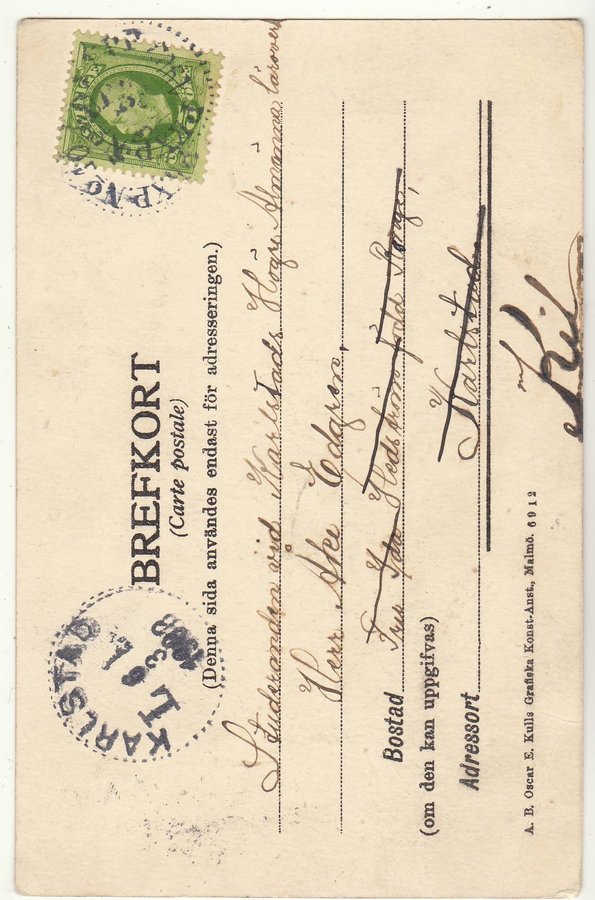 BREFKORT
(Carte postale)
(Denna sida användes endast för adresseringen.)
Studeranden vid Karlstads Högre Almänna läroverk
Herr Åke Edgren,
Bostad Fru Hedström född
(om den kan uppgifvas)
Adressort Karlstad
Kil
A. B. Oscar E. Kulls Grafiska Konst-Anst., Malmö. 6912
KARLSTAD
SVERIGE